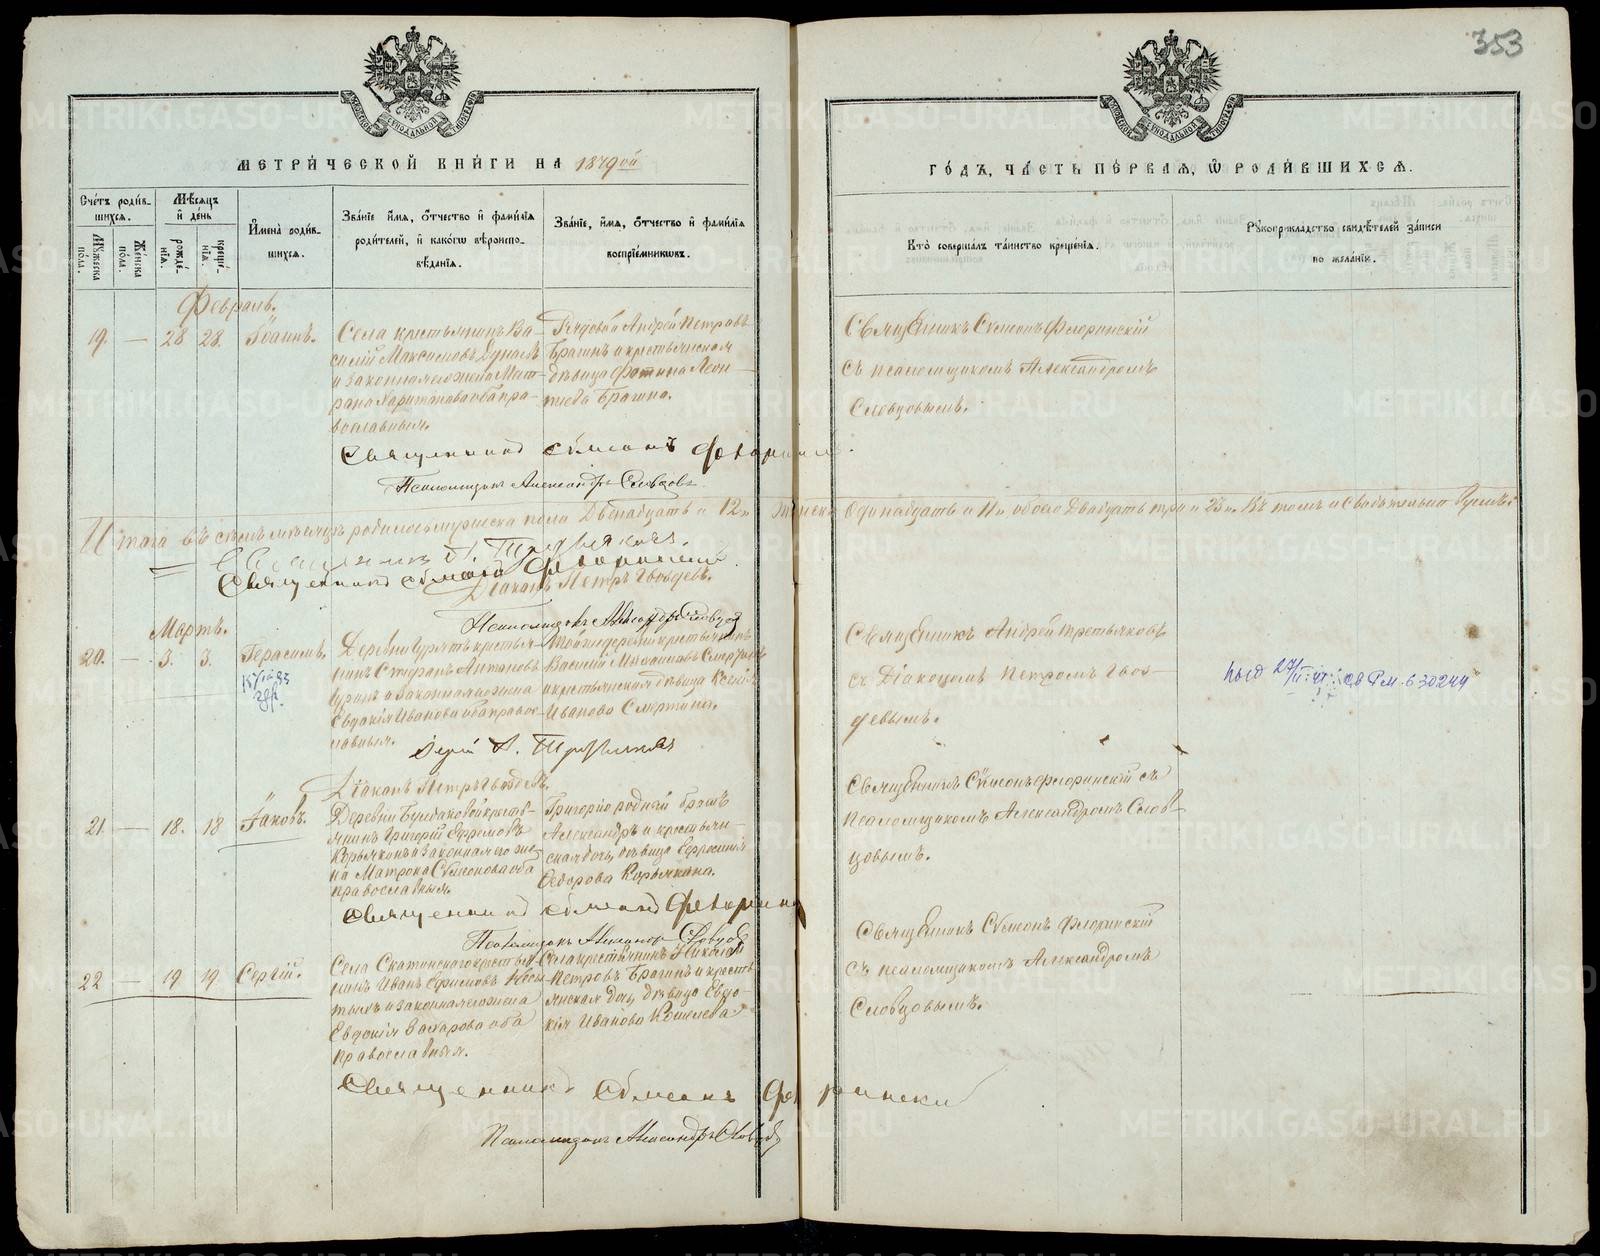 353
МЕТРИЧЕСКОЙ КНИГИ НА 1879ой
ГОДЪ, ЧАСТЬ ПЕРВАЯ, Ѡ РОДИВШИХСЯ.
Счетъ родив-
шихся.
Мужеска
пола.
Женска
пола.
Мѣсяцъ
и день
рожде-
нія.
креще-
нія.
Имена родив-
шихся.
Званіе имя, отчество и фамилія
родителей, и какогѡ вѣроиспо-
вѣданія.
Званіе, имя, отчество и фамилія
воспріемниковъ.
Кто совершалъ таинство крещенія.
Рукоприкладство свидѣтелей записи
по желанію.
Февраль.
19. — 28 28. Іоаннъ.
Села крестьянинъ Ва-
силій Максимовъ
и законная его жена Мат-
рона Харитонова оба пра-
вославныя.
Рядовой Андрей Петровъ
Брагинъ и крестьянская
дѣвица Фотина Леон-
тіева Брагина.
Священникъ Симеонъ Флоринскій
съ псаломщикомъ Александромъ
Словцовымъ.
Священникъ Симеонъ Флорински
Псаломщикъ Александръ Словцовъ
Итого въ семъ мѣсяцѣ родилось мужеска пола Двенадцать и 12 женска Одинадцать и 11 обоего Двадцать три и 23.
Священникъ А. Третьяковъ.
Священникъ Симеонъ Флоринский.
Діаконъ Петръ Гвоздевъ.
Псаломщикъ Александръ Словцовъ
Мартъ.
20. — 3. 3. Герасимъ.
Деревни крестья-
нинъ Стефанъ Антоновъ
и законная жена
Евдокія Иванова оба правос-
лавныя.
Той же деревни крестьянинъ
Василій
и крестьянская дѣвица
Иванова Смертина.
Священникъ Андрей Третьяковъ
съ Діакономъ Петромъ Гвоз-
девымъ.
Іерей А. Третьяковъ
Діаконъ Петръ Гвоздевъ.
21. — 18. 18 Іаковъ.
Деревни Бурдаковой кресть-
янинъ Григорій Ефремовъ
Корякинъ и законная его же-
на Матрона Симеонова оба
православныя.
Григорію родный братъ
Александръ и крестьян-
ская дочь, дѣвица Ефросинія
Федорова Корякина.
Священникъ Симеонъ Флоринскій съ
псаломщикомъ Александромъ Слов-
цовымъ.
Священникъ Симеонъ Флорински
Псаломщикъ Александръ Словцовъ
22 — 19 19. Сергій.
Села Скатинскаго крестья-
нинъ Иванъ Ефимовъ
и законная его жена
Евдокія Захарова оба
православныя.
Села крестьянинъ Николай
Петровъ Брагинъ и кресть-
янская дочь, дѣвица Евдо-
кія Иванова Кошелева
Священникъ Симеонъ Флоринскій
съ псаломщикомъ Александромъ
Словцовымъ.
Священникъ Симеонъ Флорински
Псаломщикъ Александръ Словцовъ